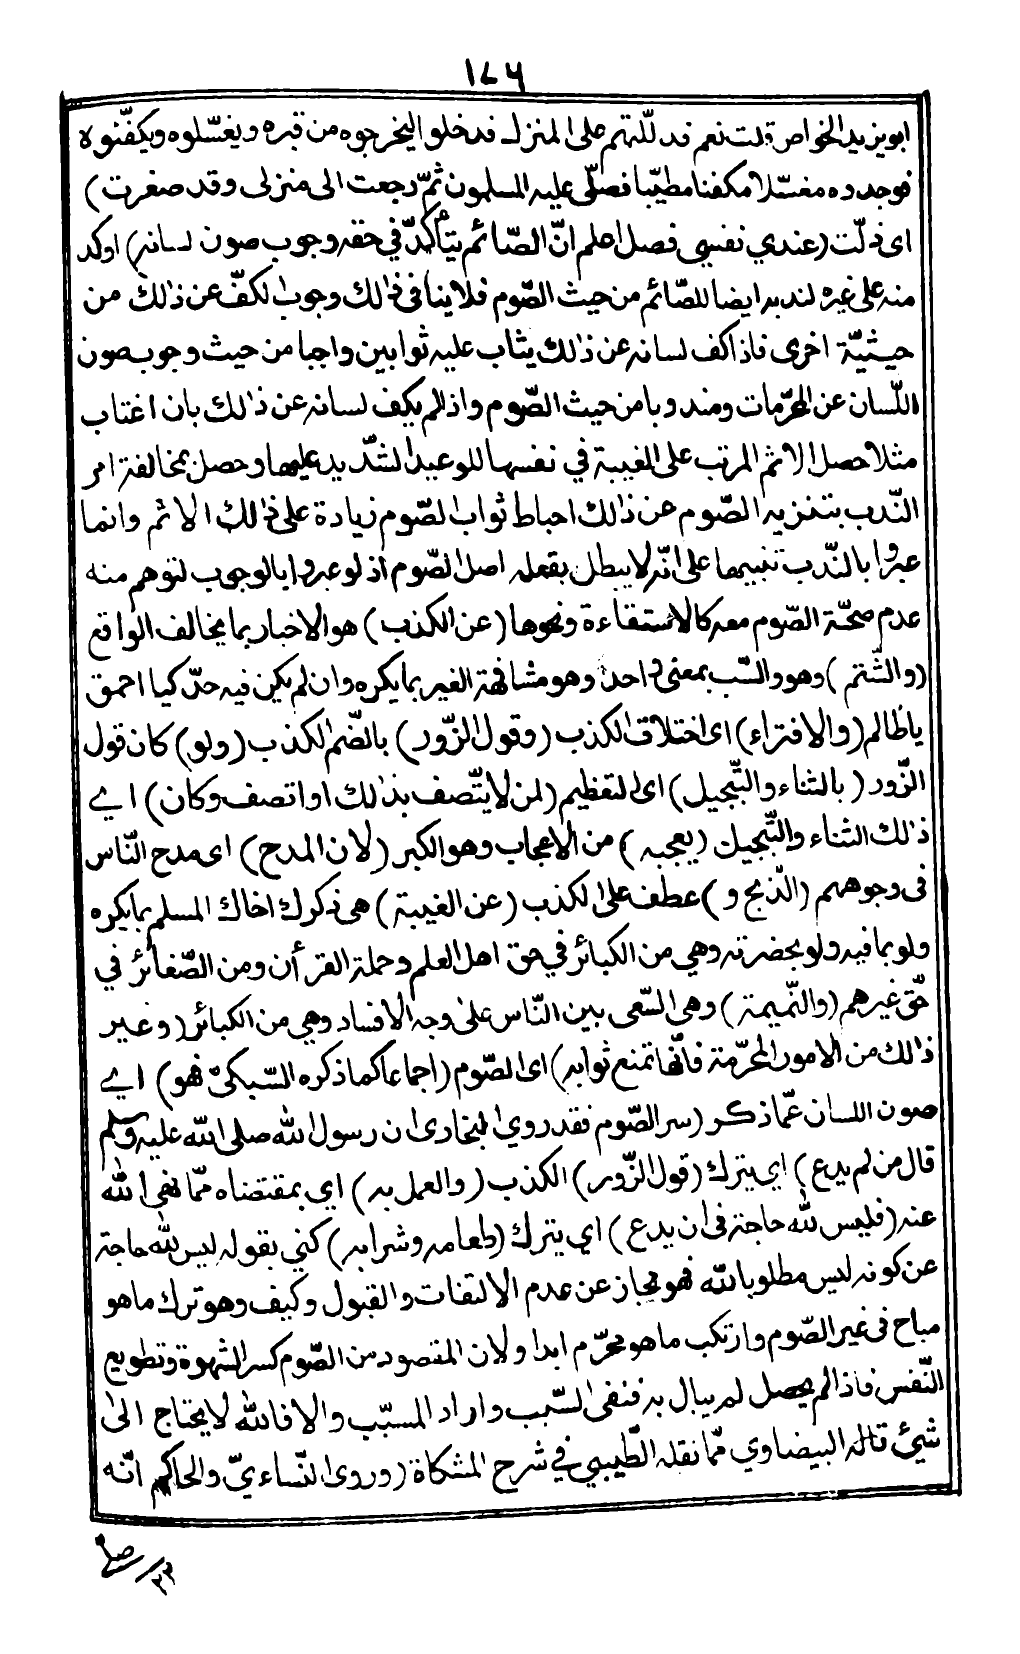 ١٨٦
ابو يزيد الخواص قلت نعم فدللتهم على المنزل فدخلو اليخرجوه من قبره ويغسّلوه ويكفّنوه
فوجدوه مغسّلا مكفنا مطيّبا فصلّى عليه المسلمون ثمّ رجعت الى منزلى وقد صغرت)
اى ذلّت (عندي نفسي فصل اعلم انّ الصّائم يتأكّد في حقه وجوب صون لسانه) اوكد
منه على غيره لندبه ايضا للصّائم من حيث الصّوم فلا ينا فى ذٰلك وجوب الكفّ عن ذٰلك من
حيثيّة اخرى فاذا كف لسانه عن ذٰلك يثاب عليه ثوابين واجبا من حيث وجوب صون
اللّسان عن المحرّمات ومندوبا من حيث الصّوم واذ الم يكف لسانه عن ذٰلك بان اغتاب
مثلا حصل الاثم المرتب على الغيبة في نفسها للوعيد الشّديد عليها وحصل بمخالفة امر
النّدب بتنزيه الصّوم عن ذٰلك احباط ثواب الصّوم زيادة على ذٰلك الاثم وانما
عبروا بالنّدب تنبيها على انّه لا يبطل بفعله اصل الصّوم اذ لو عبروا بالوجوب لتوهم منه
عدم صحّة الصّوم معه كالاستقاءة ونحوها (عن الكذب) هو الاخبار بما يخالف الواقع
(والشّتم) وهو والسّب بمعنى واحد وهو مشافهة الغير بما يكره وان لم يكن فيه حدّ كيا احمق
يا ظالم (والافتراء) اى اختلاق الكذب (وقول الزّور) بالضّم الكذب (ولو) كان قول
الزّور (بالثناء والتّبجيل) اى التعظيم (لمن لا يتّصف بذٰلك او اتصف وكان) اے
ذٰلك الثناء والتّبجيل (يعجبه) من الاعجاب وهو الكبر (لان المدح) اى مدح النّاس
فى وجوههم (الذّبح و) عطف على الكذب (عن الغيبة) هى ذكرك اخاك المسلم بما يكره
ولو بما فيه ولو بحضرته وهي من الكبائر في حق اهل العلم وحملة القرأن ومن الصّغائر في
حّق غيرهم (والنّميمة) وهى السّعى بين النّاس على وجه الافساد وهي من الكبائر (وغير
ذٰلك من الامور المحرّمة فانّها تمنع ثوابه) اى الصّوم (اجماعا كما ذكره السّبكيّ فهو) اے
صون اللسان عمّا ذكر (سر الصّوم فقد روي البخارى ان رسول الله صلى الله عليه وسلم
قال من لم يدع) اي يترك (قول الزّور) الكذب (والعمل به) اي بمقتضاه ممّا نهى الله
عنه (فليس لله حاجة فى ان يدع) اي يترك (طعامه وشرابه) كني بقوله ليس لله حاجة
عن كونه ليس مطلوبا لله فهو مجاز عن عدم الالتفات والقبول وكيف وهو ترك ما هو
مباح فى غير الصّوم وارتكب ما هو محرّم ابدا ولان المقصود من الصّوم كسر الشهوة وتطويع
النّفس فاذا لم يحصل لم يبال به فنفى السّبب واراد المسبّب والا فالله لا يحتاج الى
شيئ قاله البيضاوي ممّا نقله الطّيبي في شرح المشكاة (وروى النّساءيّ والحاكم انّه
٢٣